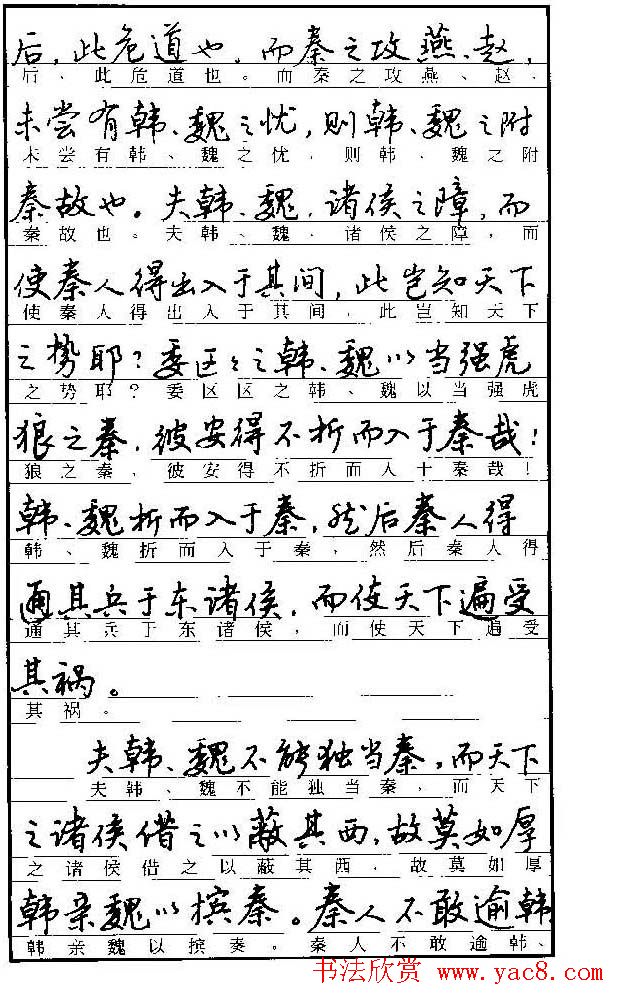 后，此危道也。而秦之攻燕、赵，
后、此危道也。而秦之攻燕、赵、
未尝有韩、魏之忧，则韩、魏之附
未尝有韩、魏之忧，则韩、魏之附
秦故也。夫韩、魏，诸侯之障，而
秦故也。夫韩、魏，诸侯之障，而
使秦人得出入于其间，此岂知天下
使秦人得出入于其间，此岂知天下
之势耶？委区々之韩、魏以当强虎
之势耶？委区区之韩、魏以当强虎
狼之秦，彼安得不折而入于秦哉！
狼之秦，彼安得不折而入十秦哉！
韩、魏折而入于秦，然后秦人得
韩、魏折而入于秦，然后秦人得
通其兵于东诸侯，而使天下遍受
通其兵于东诸侯，而使天下遍受
其祸。
其祸。
夫韩、魏不能独当秦，而天下
夫韩、魏不能独当秦，而天下
之诸侯借之以蔽其西，故莫如厚
之诸侯借之以蔽其西，故莫如厚
韩亲魏以摈秦。秦人不敢逾韩
韩亲魏以摈秦。秦人不敢逾韩、
书法欣赏 www.yac8.com